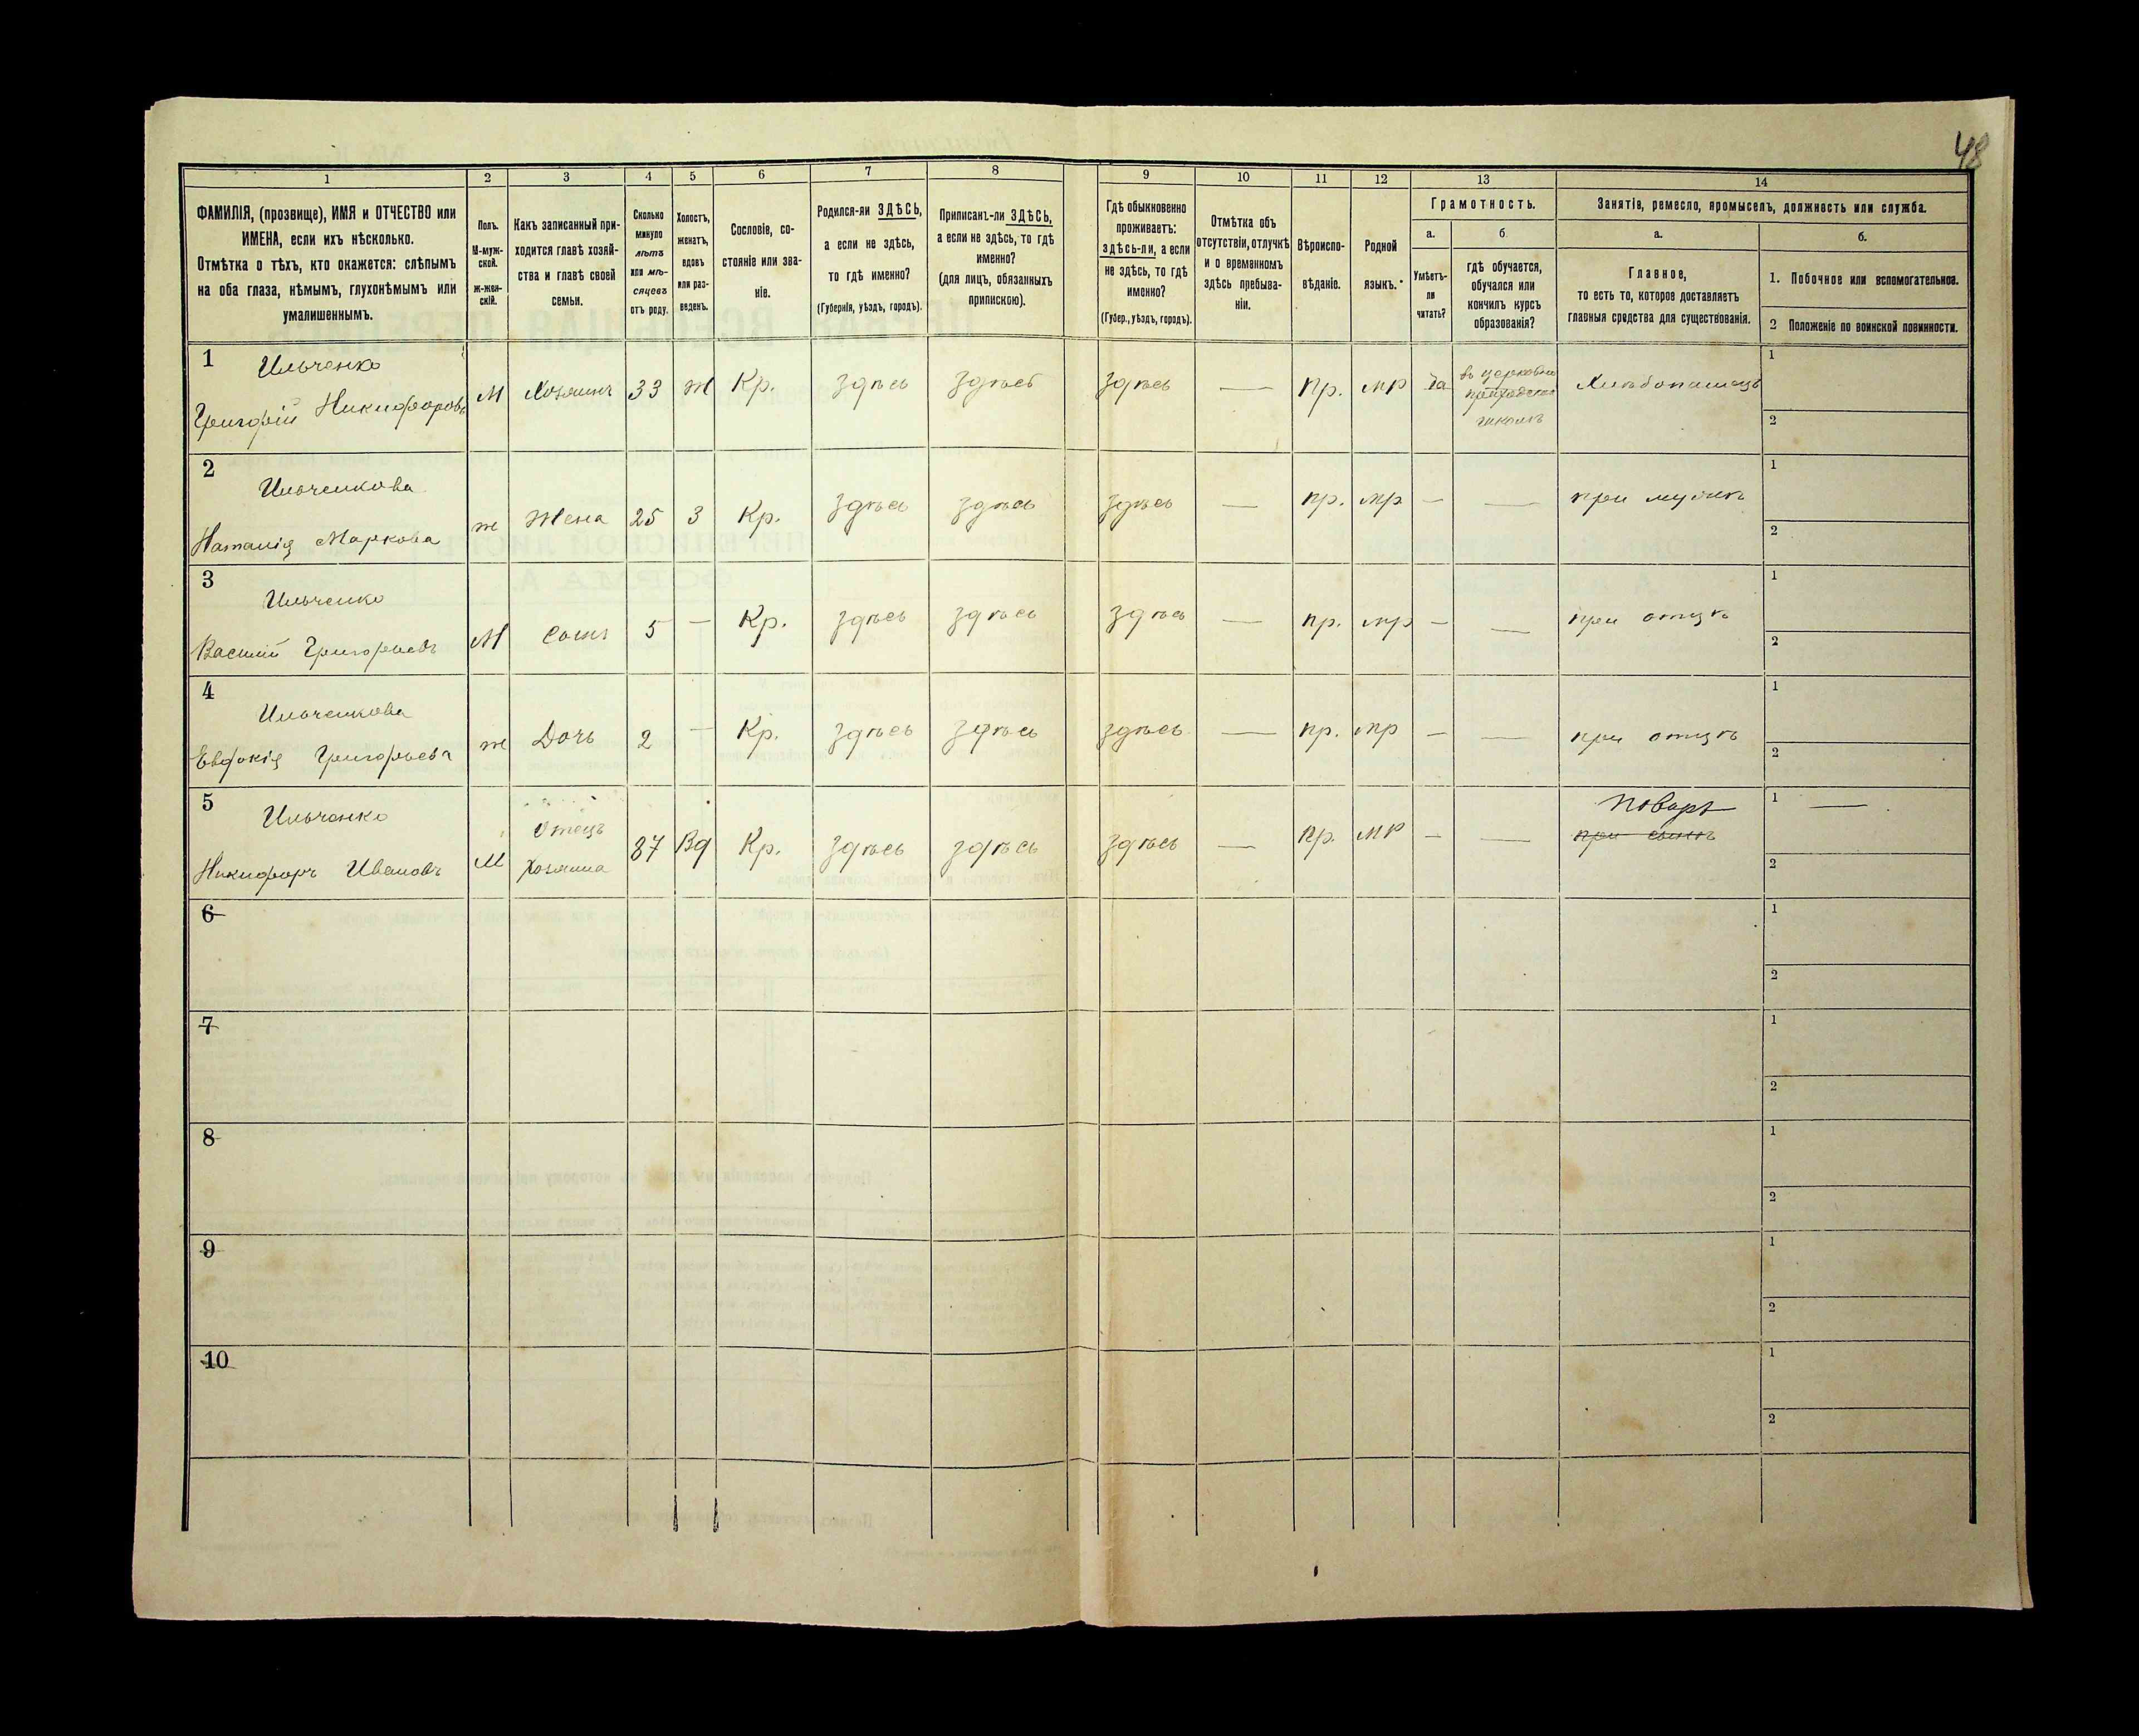 48
1 2 3 4 5 6 7 8 9 10 11 12 13 14
ФАМИЛІЯ, (прозвище), ИМЯ и ОТЧЕСТВО или
ИМЕНА, если ихъ нѣсколько.
Отмѣтка о тѣхъ, кто окажется: слѣпымъ
на оба глаза, нѣмымъ, глухонѣмымъ или
умалишеннымъ.
Полъ.
М-муж-
ской.
ж-жен-
скій.
Какъ записанный при-
ходится главѣ хозяй-
ства и главѣ своей
семьи.
Сколько
минуло
лѣтъ
или мѣ-
сяцевъ
отъ роду.
Холостъ,
женатъ,
вдовъ
или раз-
веденъ.
Сословіе, со-
стояніе или зва-
ніе.
Родился-ли ЗДѢСЬ,
а если не здѣсь,
то гдѣ именно?
(Губернія, уѣздъ, городъ).
Приписанъ-ли ЗДѢСЬ,
а если не здѣсь, то гдѣ
именно?
(для лицъ, обязанныхъ
припискою).
Гдѣ обыкновенно
проживаетъ:
здѣсь-ли, а если
не здѣсь, то гдѣ
именно?
(Губер., уѣздъ, городъ).
Отмѣтка объ
отсутствіи, отлучкѣ
и о временномъ
здѣсь пребыва-
ніи.
Вѣроиспо-
вѣданіе.
Родной
языкъ.
Грамотность.
а.
Умѣетъ-
ли
читать?
б.
гдѣ обучается,
обучался или
кончилъ курсъ
образованія?
Занятіе, ремесло, промыселъ, должность или служба.
а.
Главное,
то есть то, которое доставляетъ
главныя средства для существованія.
б.
1. Побочное или вспомогательное.
2 Положеніе по воинской повинности.
1 Ильченко
Григорій Никифоровъ
М Хозяинъ 33 Ж Кр. здѣсь здѣсь здѣсь — пр. мр да
въ церковно
приходской
школѣ
Хлѣбопашецъ
1
2
2 Ильченкова
Наталія Маркова
ж Жена 25 З Кр. здѣсь здѣсь здѣсь — пр. мр — — при мужѣ
1
2
3 Ильченко
Василій Григорьевъ
М Сынъ 5 — Кр. здѣсь здѣсь здѣсь — пр. мр — — при отцѣ
1
2
4 Ильченкова
Евдокія Григорьева
ж Дочь 2 — Кр. здѣсь здѣсь здѣсь — пр. мр — — при отцѣ
1
2
5 Ильченко
Никифоръ Ивановъ
М
Отецъ
Хозяина
87 Вд Кр. здѣсь здѣсь здѣсь — пр. мр — —
Поваръ
при сынѣ
1 —
2
6
1
2
7
1
2
8
1
2
9
1
2
10
1
2